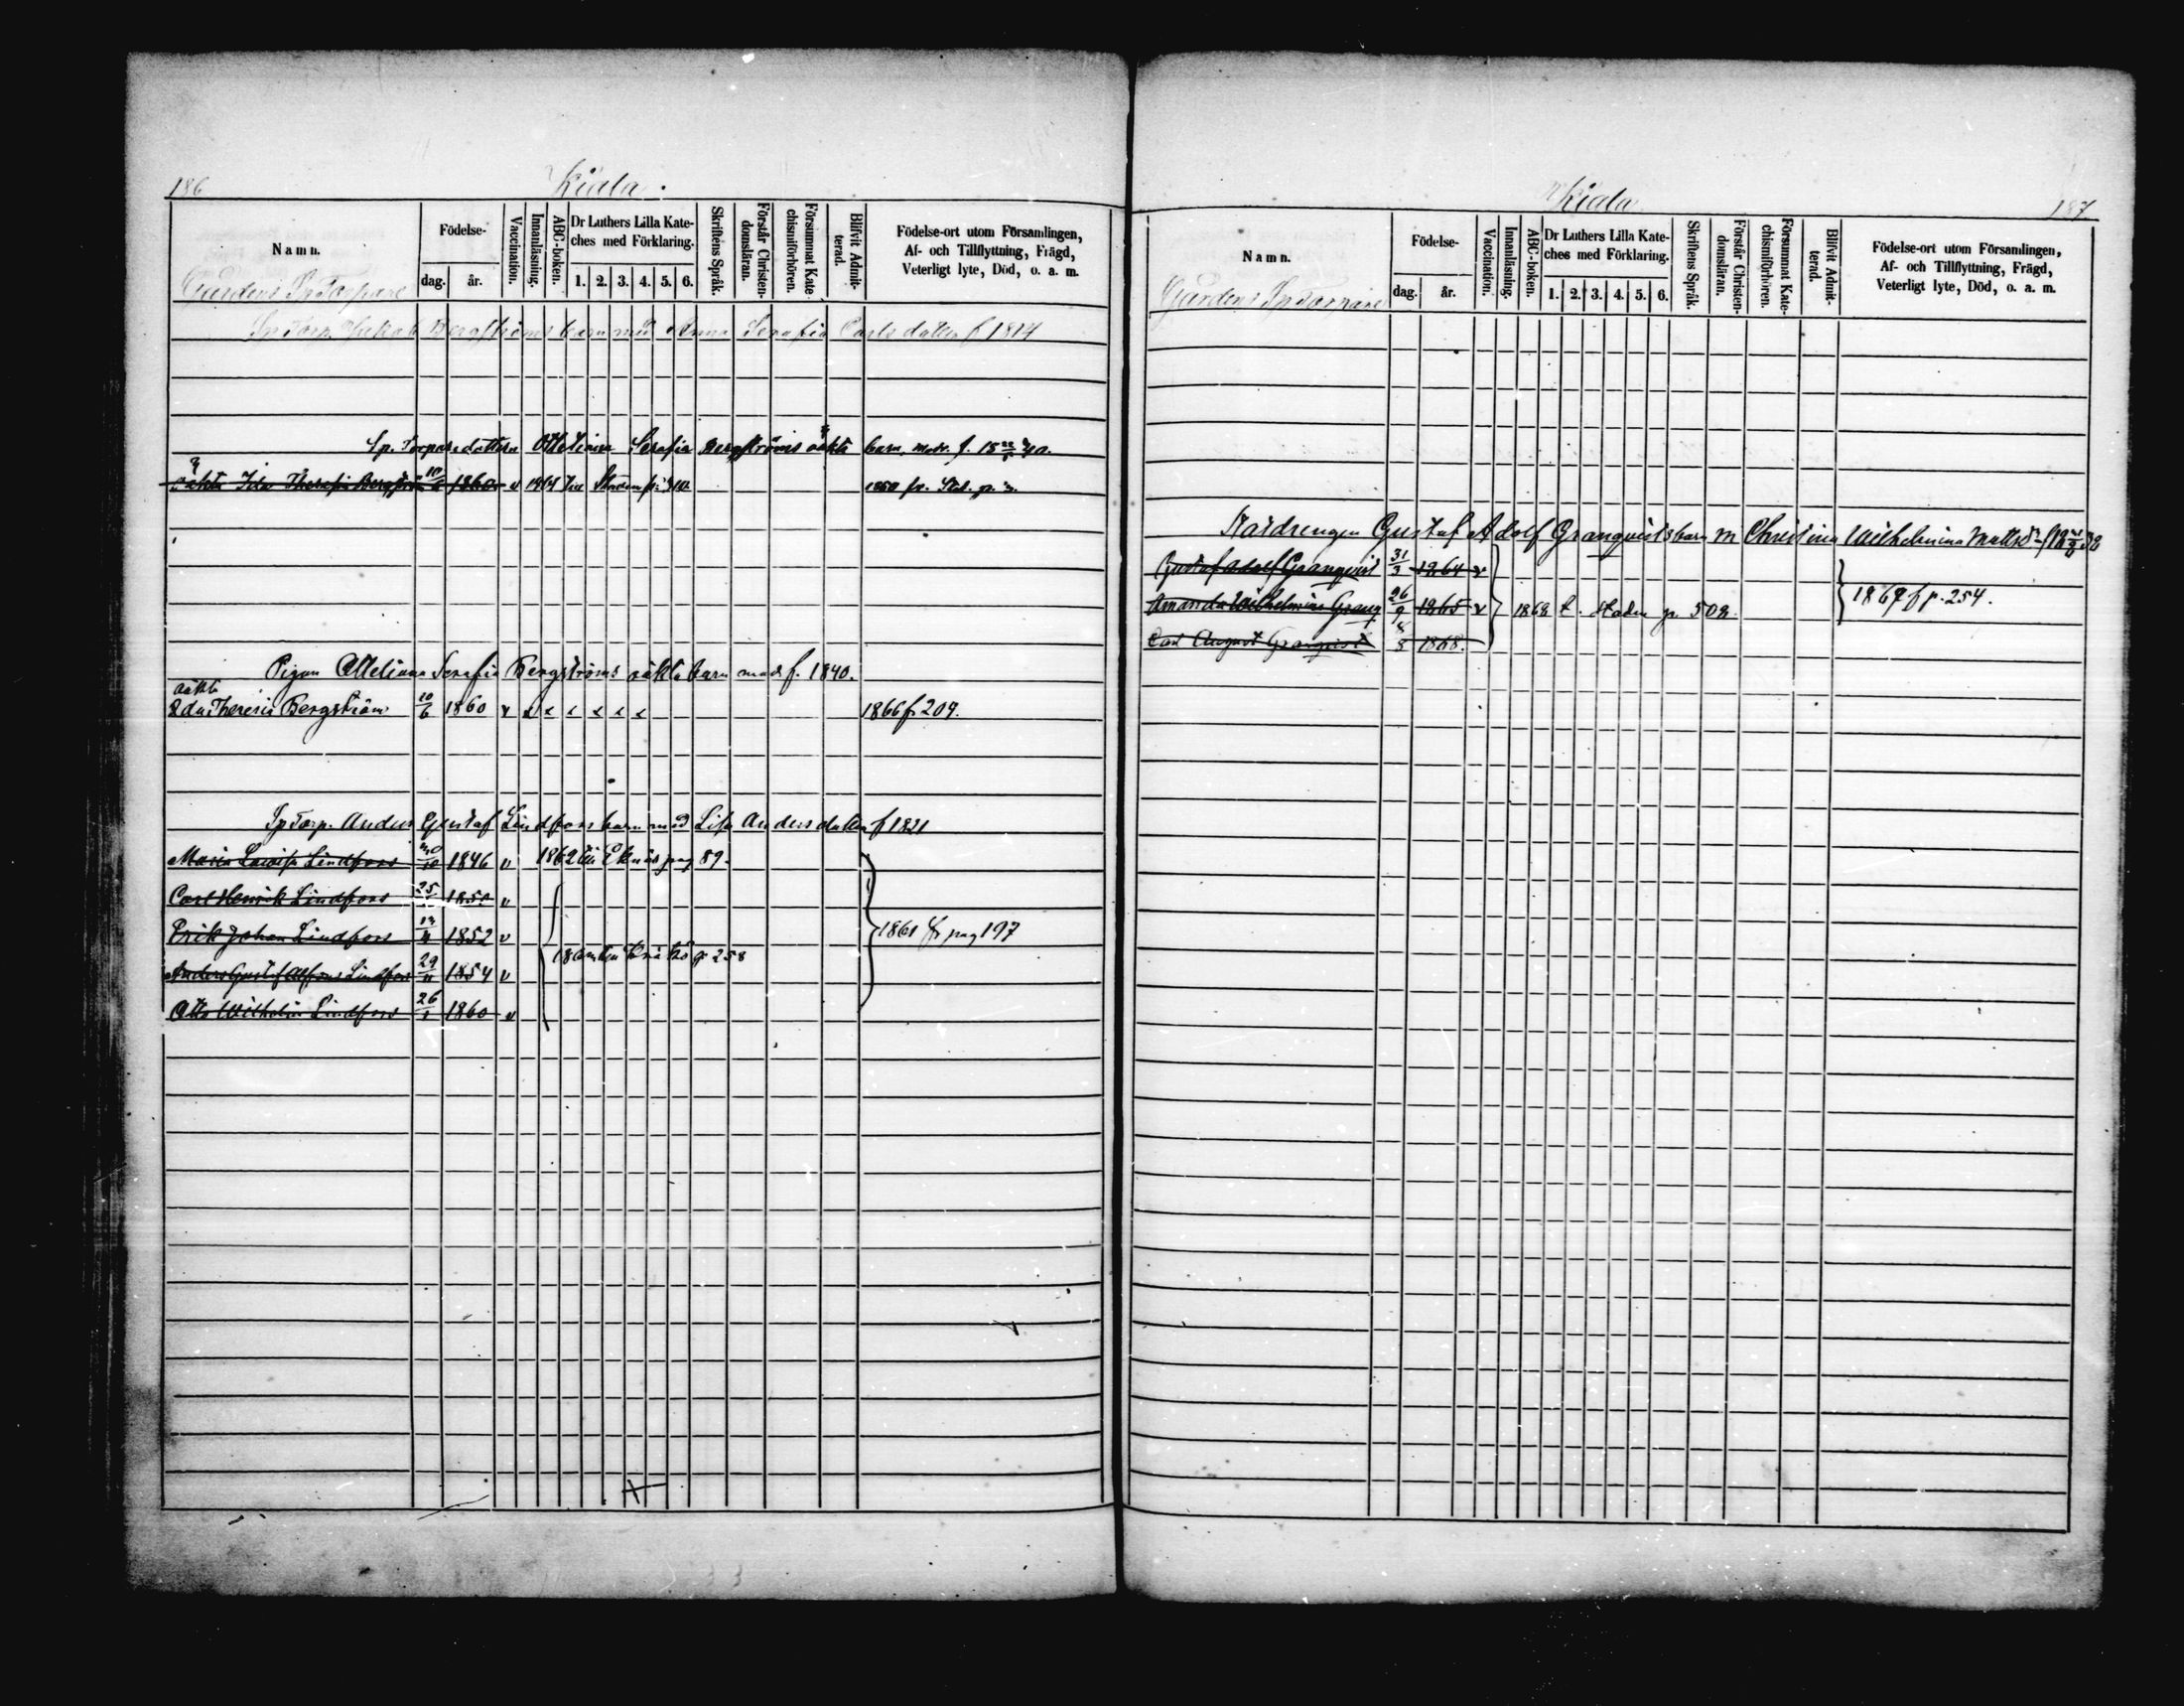 186
Kiala.
Namn.
Födelse-
dag. år.
Vaccination.
Innanläsning.
ABC-boken.
Dr Luthers Lilla Kate-
ches med Förklaring.
1. 2. 3. 4. 5. 6.
Skriftens Språk.
Förstår Christen-
domsläran.
Försummat Kate-
chismiförhören.
Blifvit Admit-
terad.
Födelse-ort utom Församlingen,
Af- och Tillflyttning, Frägd,
Veterligt lyte, Död, o. a. m.
Gårdens Sp Torpare
Sp Torp. Jakob Bergströms barn med Anna Serafia Carls datter f 1814
Sp. Torpare dottern Serafia Bergströms oäkta barn, f. 40.
oäkta Ida Theresia Bergström 10/6 1860 v
Pigan Serafia Bergströms oäkta barn mod f. 1840.
oäkta
Ida Theresia Bergström 10/6 1860 v 1866 fr 209.
Sp Torp. Anders Gustaf Lindfors barn med Lisa Anders datter f 1821
Maria Lovisa Lindfors 1846 v 1862 till Eknäs pag 89.
Carl Henrik Lindfors 1850 v
Erik Johan Lindfors 1852 v 1861 fr pag 197
p 258
Anders Gustaf Alfons Lindfors 29/11 1854 v
Otto Wilhelm Lindfors 1860 v
Kiala
187
Namn.
Födelse-
dag. år.
Vaccination.
Innanläsning.
ABC-boken.
Dr Luthers Lilla Kate-
ches med Förklaring.
1. 2. 3. 4. 5. 6.
Skriftens Språk.
Förstår Christen-
domsläran.
Försummat Kate-
chismiförhören.
Blifvit Admit-
terad.
Födelse-ort utom Församlingen,
Af- och Tillflyttning, Frägd,
Veterligt lyte, Död, o. a. m.
Gårdens Sp Torpare
Statdrengen Gustaf Adolf Granqvists barn m Christina Wilhelmina
Gustaf Adolf Granqvist 31/3 1864 v
Amanda Wilhelmina Granq 26/9 1865 v 1868 t. staden p. 508. 1867 f p. 254.
Carl August Granqvist 1868.